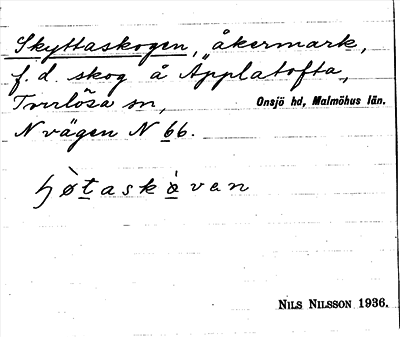 Skyttaskogen, åkermark,
f. d. skog å Äpplatofta,
Torrlösa sn, Onsjö hd, Malmöhus län.
N vägen N 66.
ʃø̀taskàvan
NILS NILSSON 1936.